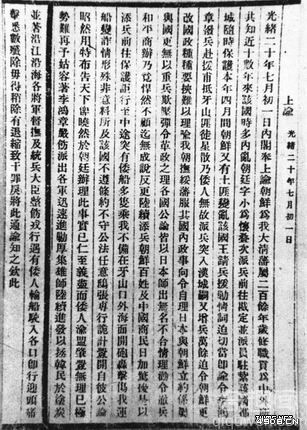 上諭　光緒二十年七月初一日
光緒二十年七月初一日內閣奉上諭朝鮮為我大清藩屬二百餘年歲修職貢為中外所
共知近十數年來該國時多內亂朝廷字小為懷疊次派兵前往戡定並派員駐紮該國都
城隨時保護本年四月間朝鮮又有土匪變亂該國王請兵援勦情詞迫切當即諭令李鴻
章撥兵赴援甫抵牙山匪徒星散乃倭人無故派兵突入漢城嗣又增兵萬餘迫令朝鮮更
改國政種種要挾難以理喻我朝撫綏藩服其國內政事向令自理日本與朝鮮立約係屬
與國更無以重兵欺壓強令革政之理各國公論皆以日本師出無名不合情理勸令撤兵
和平商辦乃竟悍然不顧迄無成說反更陸續添兵朝鮮百姓及中國商民日加驚擾是以
添兵前往保護詎行至中途突有倭船多隻乘我不備在牙山口外海面開礮轟擊傷我運
船變詐情形殊非意料所及該國不遵條約不守公法任意鴟張專行詭計釁開自彼公論
昭然用特布告天下俾曉然於朝廷辦理此事實已仁至義盡而倭人渝盟肇釁無理已極
勢難再予姑容著李鴻章嚴飭派出各軍迅速進勦厚集雄師陸續進發以拯韓民於塗炭
並著沿江沿海各將軍督撫及統兵大臣整飭戎行遇有倭人輪船駛入各口即行迎頭痛
擊悉數殲除毋得稍有退縮致干罪戾將此通諭知之欽此